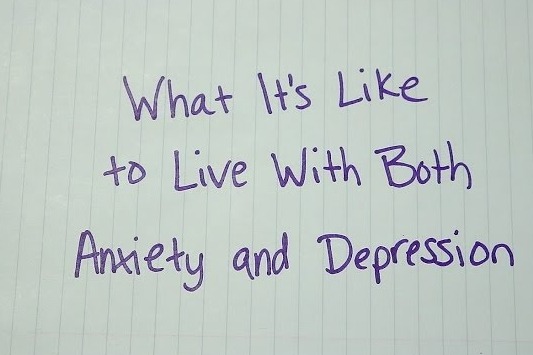 What It's Like
to Live With Both
Anxiety and Depression